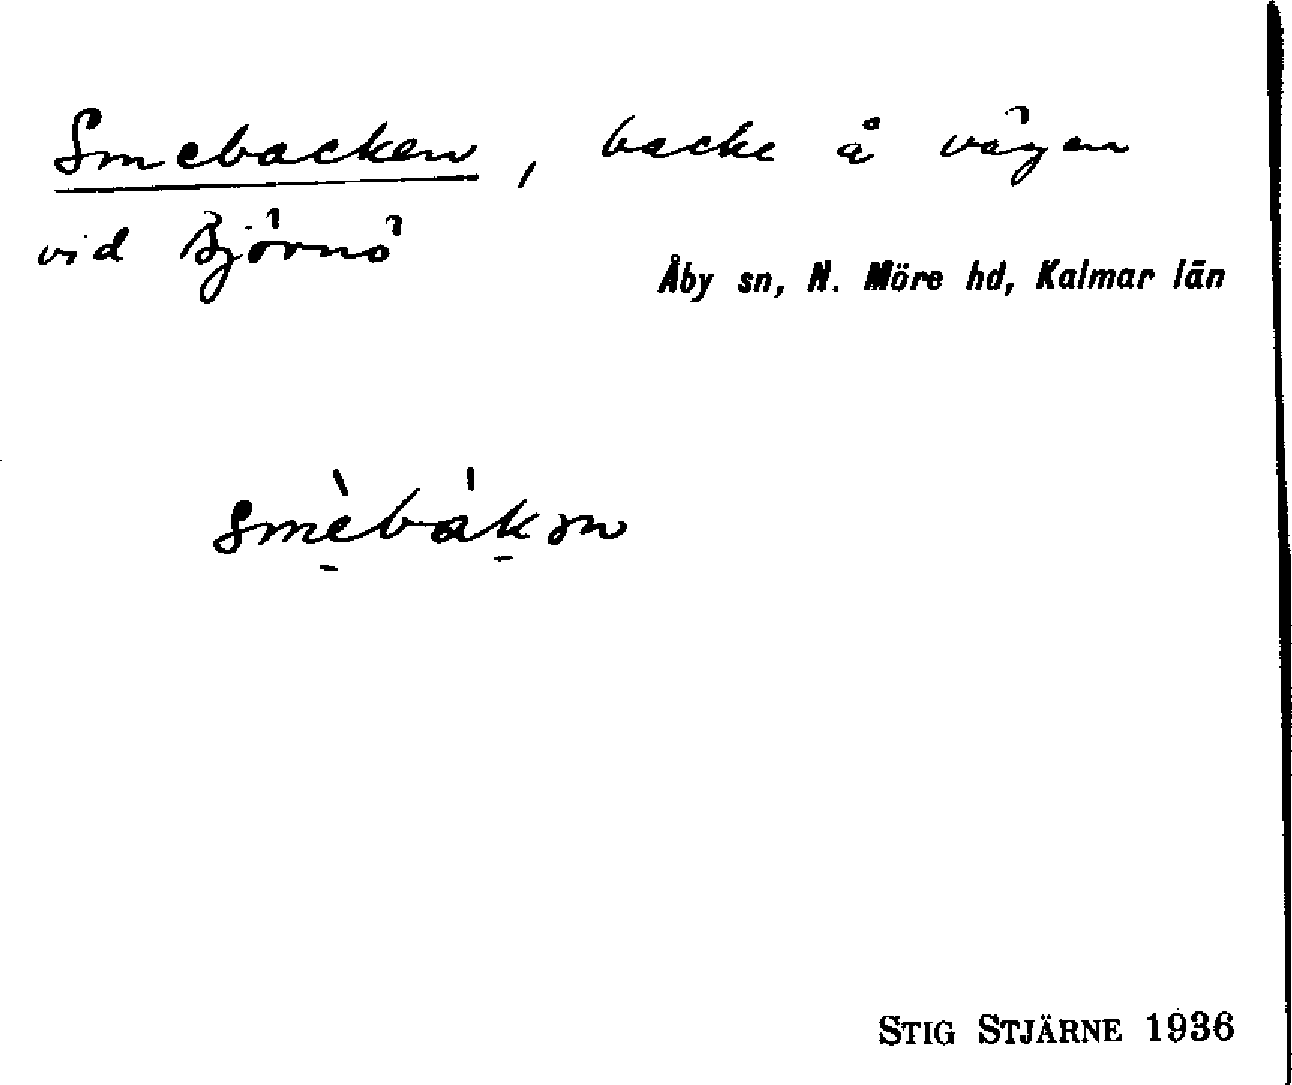 Smebacken, backe å vägen
vid Björnö
Åby sn, N. Möre hd, Kalmar län
smè̠bák̠ən
STIG STJÄRNE 1936